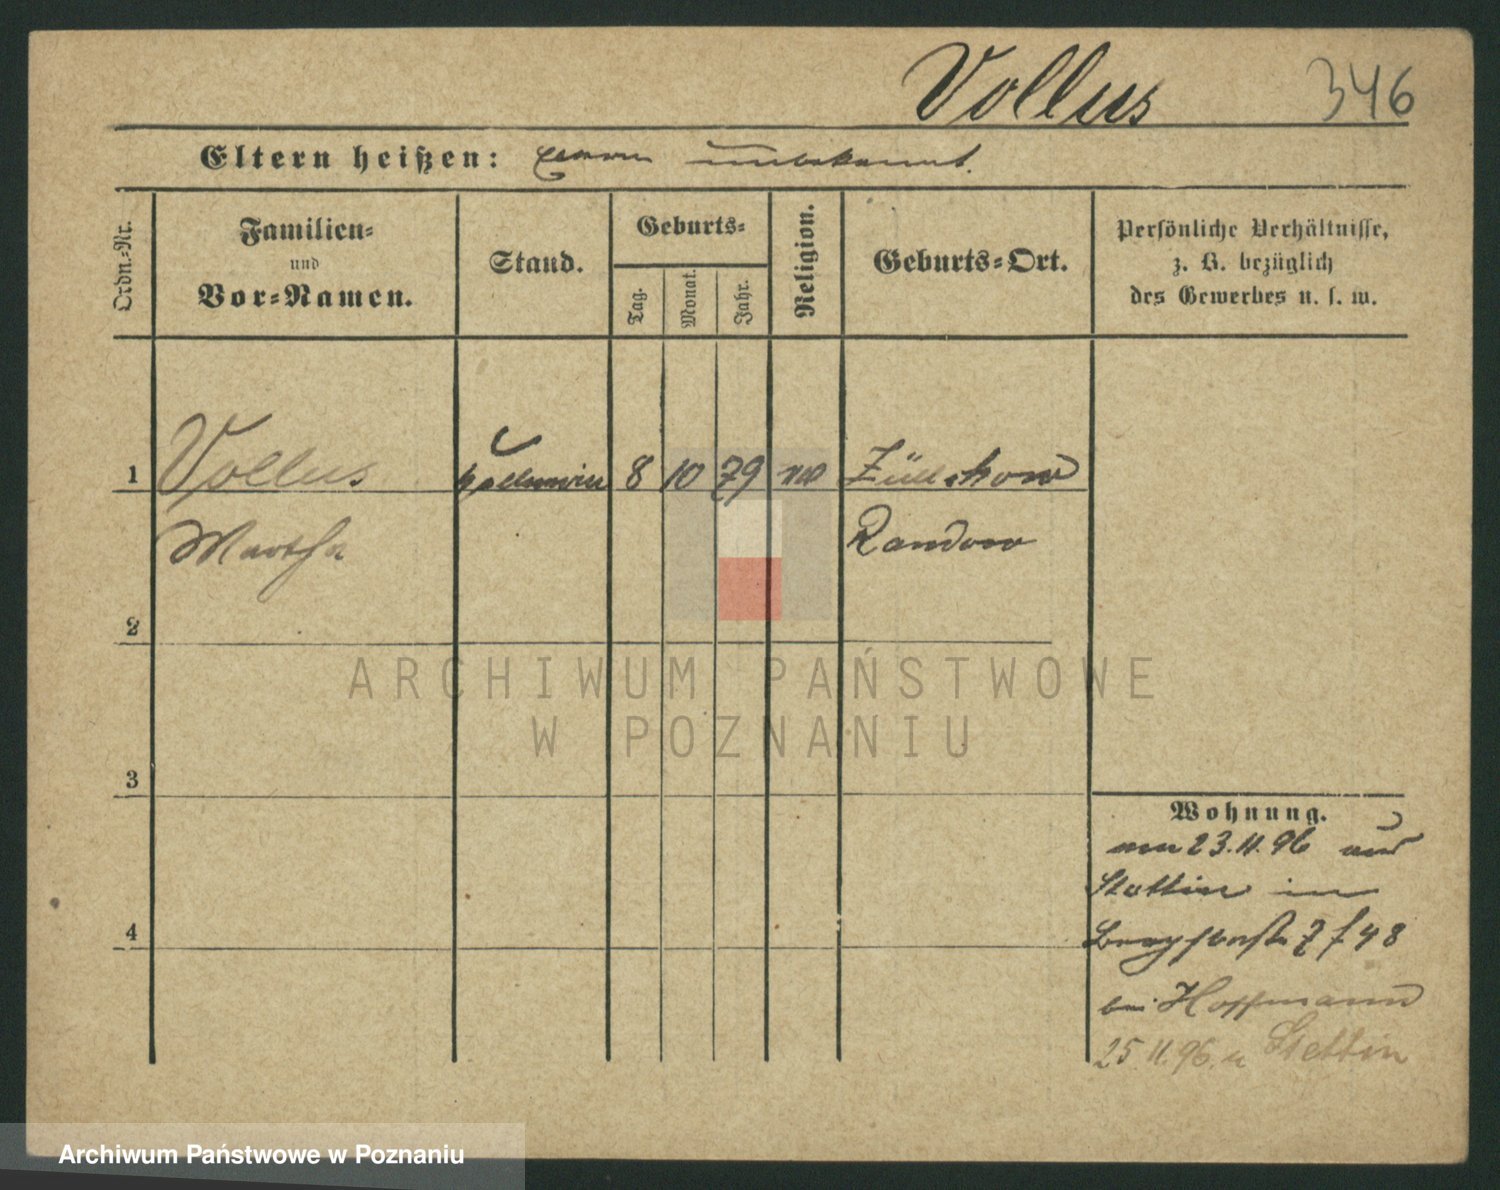 Vollus 346
Eltern heißen: unbekannt.
Ordn.-Nr.
Familien-
und
Vor-Namen.
Stand.
Geburts-
Tag.
Monat.
Jahr.
Religion.
Geburts-Ort.
Persönliche Verhältnisse,
z. B. bezüglich
des Gewerbes u. s. w.
1 Vollus Kellnerin 8 10 79 Züllchow
Martha Randow
2
ARCHIWUM PAŃSTWOWE
W POZNANIU
3
Wohnung.
23.11.96 aus
Stettin in
Bergstraße 7 f 48
4
bei Hoffmann
25.11.96. n Stettin
Archiwum Państwowe w Poznaniu